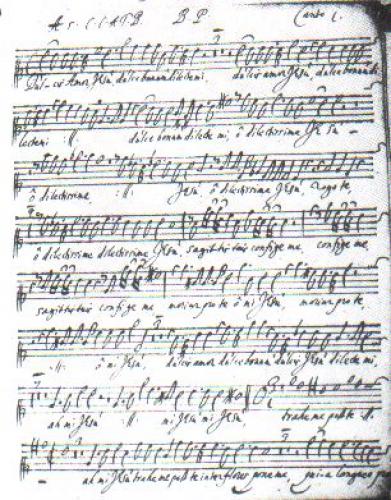 A 5. C C A T B. B P Canto I.
Dulcis Amor Jesu, dulce bonum dilecte mi, dulcis amor Jesu, dulce bonum di-
lecte mi :||: dulce bonum dilecte mi, ô dilectissime Jesu
ô dilectissime :||: Jesu, ô dilectissime Jesu, rogo te,
ô dilectissime dilectissime Jesu, sagittis tuis confige me, confige me,
sagittis tuis confige me moriar pro te ô mi Jesu, moriar pro te,
:||: ô mi Jesu, dulcis amor dulce bonum dulcis Jesu dilecte mi,
ah mi Jesu :||: mi Jesu mi Jesu, trahe me post te :||:
ah mi Jesu trahe me post te inter flores pone me, quia langueo